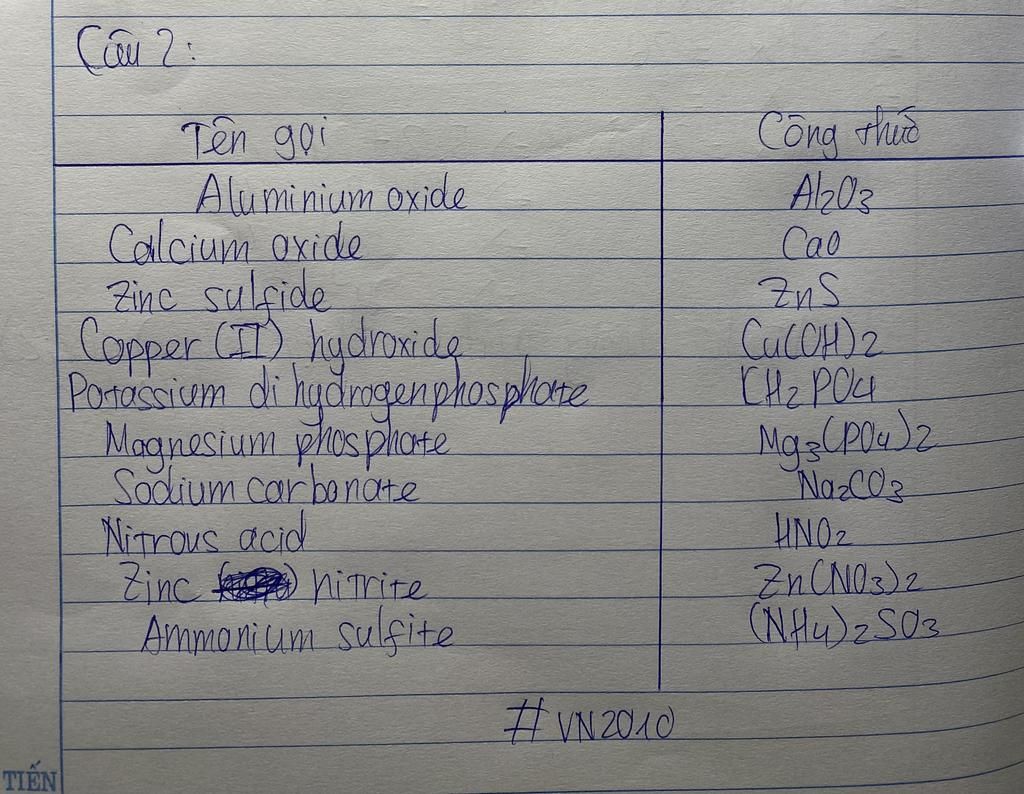 Câu 2:
Tên gọi Công thức
Aluminium oxide Al2O3
Calcium oxide CaO
Zinc sulfide ZnS
Copper (II) hydroxide Cu(OH)2
Potassium dihydrogenphosphate KH2PO4
Magnesium phosphate Mg3(PO4)2
Sodium carbonate Na2CO3
Nitrous acid HNO2
Zinc nitrite Zn(NO3)2
Ammonium sulfite (NH4)2SO3
#VN2010
TIẾN